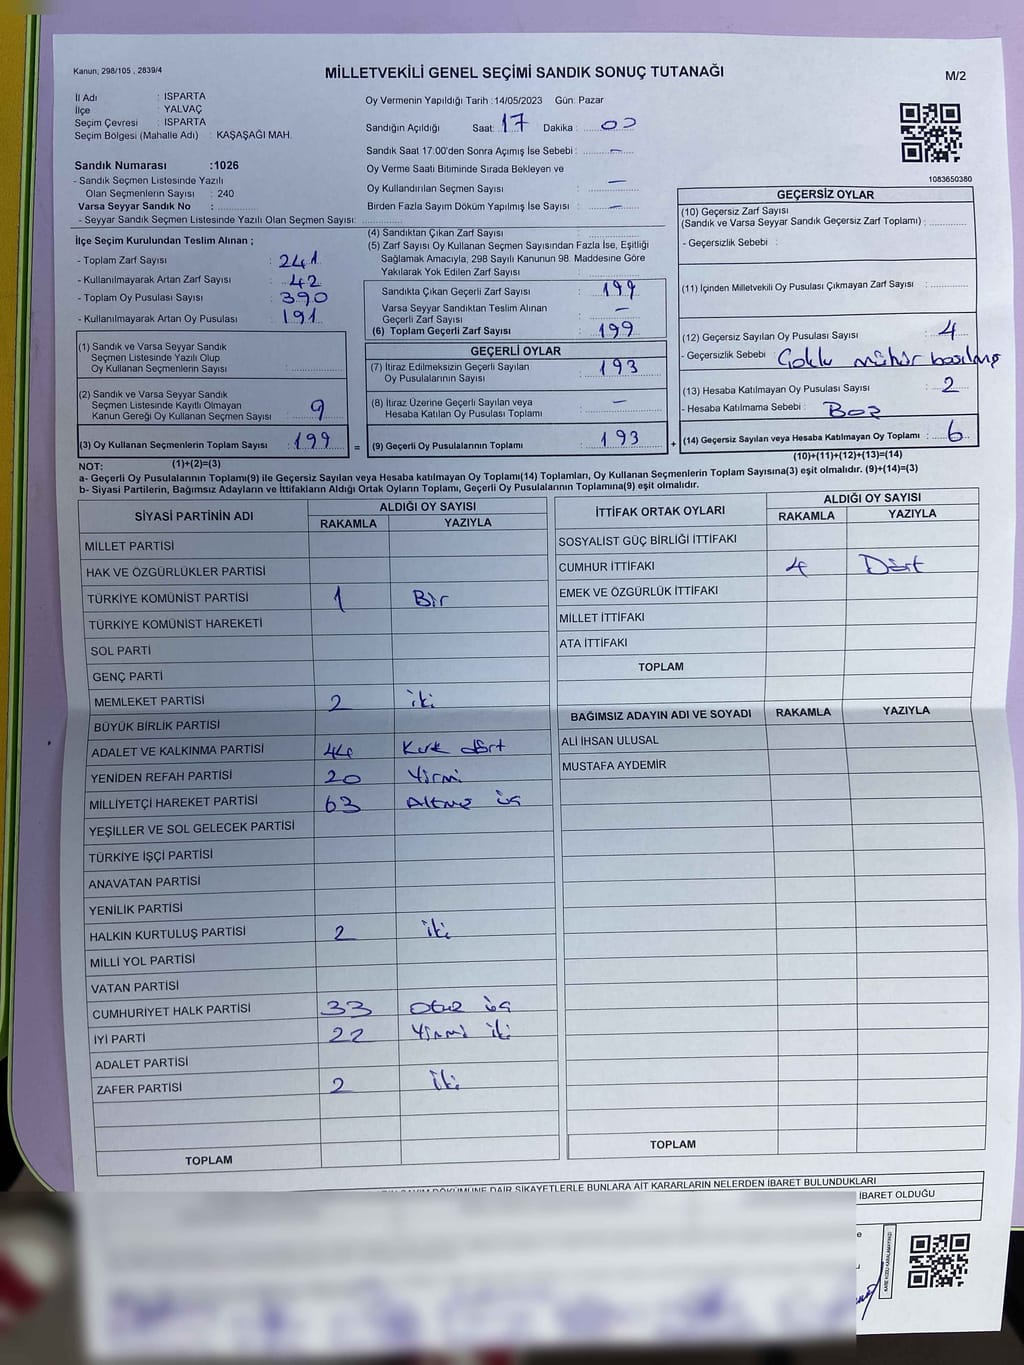 Kanun, 298/105 , 2839/4
MİLLETVEKİLİ GENEL SEÇİMİ SANDIK SONUÇ TUTANAĞI
M/2
İl Adı : ISPARTA
İlçe : YALVAÇ
Seçim Çevresi : ISPARTA
Seçim Bölgesi (Mahalle Adı) : KAŞAŞAĞI MAH.
Sandık Numarası :1026
- Sandık Seçmen Listesinde Yazılı
Olan Seçmenlerin Sayısı : 240
Varsa Seyyar Sandık No :
- Seyyar Sandık Seçmen Listesinde Yazılı Olan Seçmen Sayısı:
Oy Vermenin Yapıldığı Tarih :14/05/2023 Gün: Pazar
Sandığın Açıldığı Saat: 17 Dakika : 00
Sandık Saat 17:00'den Sonra Açımış İse Sebebi : —
Oy Verme Saati Bitiminde Sırada Bekleyen ve
Oy Kullandırılan Seçmen Sayısı : —
Birden Fazla Sayım Döküm Yapılmış İse Sayısı : —
1083650380
İlçe Seçim Kurulundan Teslim Alınan ;
- Toplam Zarf Sayısı : 241
- Kullanılmayarak Artan Zarf Sayısı : 42
- Toplam Oy Pusulası Sayısı : 390
- Kullanılmayarak Artan Oy Pusulası : 191
(1) Sandık ve Varsa Seyyar Sandık
Seçmen Listesinde Yazılı Olup
Oy Kullanan Seçmenlerin Sayısı :
(2) Sandık ve Varsa Seyyar Sandık
Seçmen Listesinde Kayıtlı Olmayan
Kanun Gereği Oy Kullanan Seçmen Sayısı : 9
(3) Oy Kullanan Seçmenlerin Toplam Sayısı : 199 =
(1)+(2)=(3)
(4) Sandıktan Çıkan Zarf Sayısı :
(5) Zarf Sayısı Oy Kullanan Seçmen Sayısından Fazla İse, Eşitliği
Sağlamak Amacıyla, 298 Sayılı Kanunun 98. Maddesine Göre
Yakılarak Yok Edilen Zarf Sayısı :
Sandıkta Çıkan Geçerli Zarf Sayısı : 199
Varsa Seyyar Sandıktan Teslim Alınan
Geçerli Zarf Sayısı : —
(6) Toplam Geçerli Zarf Sayısı : 199
GEÇERLİ OYLAR
(7) İtiraz Edilmeksizin Geçerli Sayılan
Oy Pusulalarının Sayısı : 193
(8) İtiraz Üzerine Geçerli Sayılan veya
Hesaba Katılan Oy Pusulası Toplamı : —
(9) Geçerli Oy Pusulalarının Toplamı : 193 +
GEÇERSİZ OYLAR
(10) Geçersiz Zarf Sayısı
(Sandık ve Varsa Seyyar Sandık Geçersiz Zarf Toplamı) :
- Geçersizlik Sebebi :
(11) İçinden Milletvekili Oy Pusulası Çıkmayan Zarf Sayısı :
(12) Geçersiz Sayılan Oy Pusulası Sayısı : 4
- Geçersizlik Sebebi : Çoklu mühür basılmış
(13) Hesaba Katılmayan Oy Pusulası Sayısı : 2
- Hesaba Katılmama Sebebi : Boş
(14) Geçersiz Sayılan veya Hesaba Katılmayan Oy Toplamı : 6
(10)+(11)+(12)+(13)=(14)
NOT:
a- Geçerli Oy Pusulalarının Toplamı(9) ile Geçersiz Sayılan veya Hesaba katılmayan Oy Toplamı(14) Toplamları, Oy Kullanan Seçmenlerin Toplam Sayısına(3) eşit olmalıdır. (9)+(14)=(3)
b- Siyasi Partilerin, Bağımsız Adayların ve İttifakların Aldığı Ortak Oyların Toplamı, Geçerli Oy Pusulalarının Toplamına(9) eşit olmalıdır.
SİYASİ PARTİNİN ADI ALDIĞI OY SAYISI
RAKAMLA YAZIYLA
MİLLET PARTİSİ
HAK VE ÖZGÜRLÜKLER PARTİSİ
TÜRKİYE KOMÜNİST PARTİSİ 1 Bir
TÜRKİYE KOMÜNİST HAREKETİ
SOL PARTİ
GENÇ PARTİ
MEMLEKET PARTİSİ 2 iki
BÜYÜK BİRLİK PARTİSİ
ADALET VE KALKINMA PARTİSİ 44 Kırk dört
YENİDEN REFAH PARTİSİ 20 Yirmi
MİLLİYETÇİ HAREKET PARTİSİ 63 Altmış üç
YEŞİLLER VE SOL GELECEK PARTİSİ
TÜRKİYE İŞÇİ PARTİSİ
ANAVATAN PARTİSİ
YENİLİK PARTİSİ
HALKIN KURTULUŞ PARTİSİ 2 iki
MİLLİ YOL PARTİSİ
VATAN PARTİSİ
CUMHURİYET HALK PARTİSİ 33 Otuz üç
İYİ PARTİ 22 Yirmi iki
ADALET PARTİSİ
ZAFER PARTİSİ 2 İki
TOPLAM
İTTİFAK ORTAK OYLARI ALDIĞI OY SAYISI
RAKAMLA YAZIYLA
SOSYALIST GÜÇ BİRLİĞİ İTTİFAKI
CUMHUR İTTİFAKI 4 Dört
EMEK VE ÖZGÜRLÜK İTTİFAKI
MİLLET İTTİFAKI
ATA İTTİFAKI
TOPLAM
BAĞIMSIZ ADAYIN ADI VE SOYADI RAKAMLA YAZIYLA
ALİ İHSAN ULUSAL
MUSTAFA AYDEMİR
TOPLAM
DÖKÜMÜNE DAİR ŞİKAYETLERLE BUNLARA AİT KARARLARIN NELERDEN İBARET BULUNDUKLARI
İBARET OLDUĞU